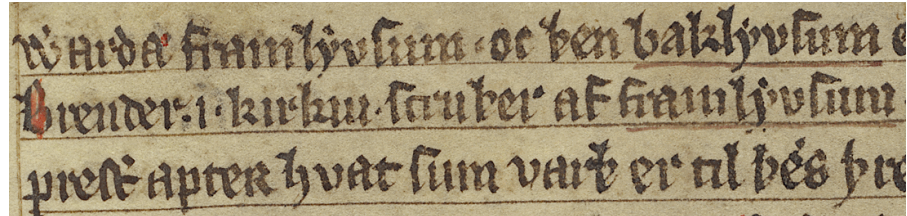 warda framlyusum · oc ben baklyusum
Brender · i · kirkiu · scruber af framlyusum
prest apter hvat sum varþ er til þes